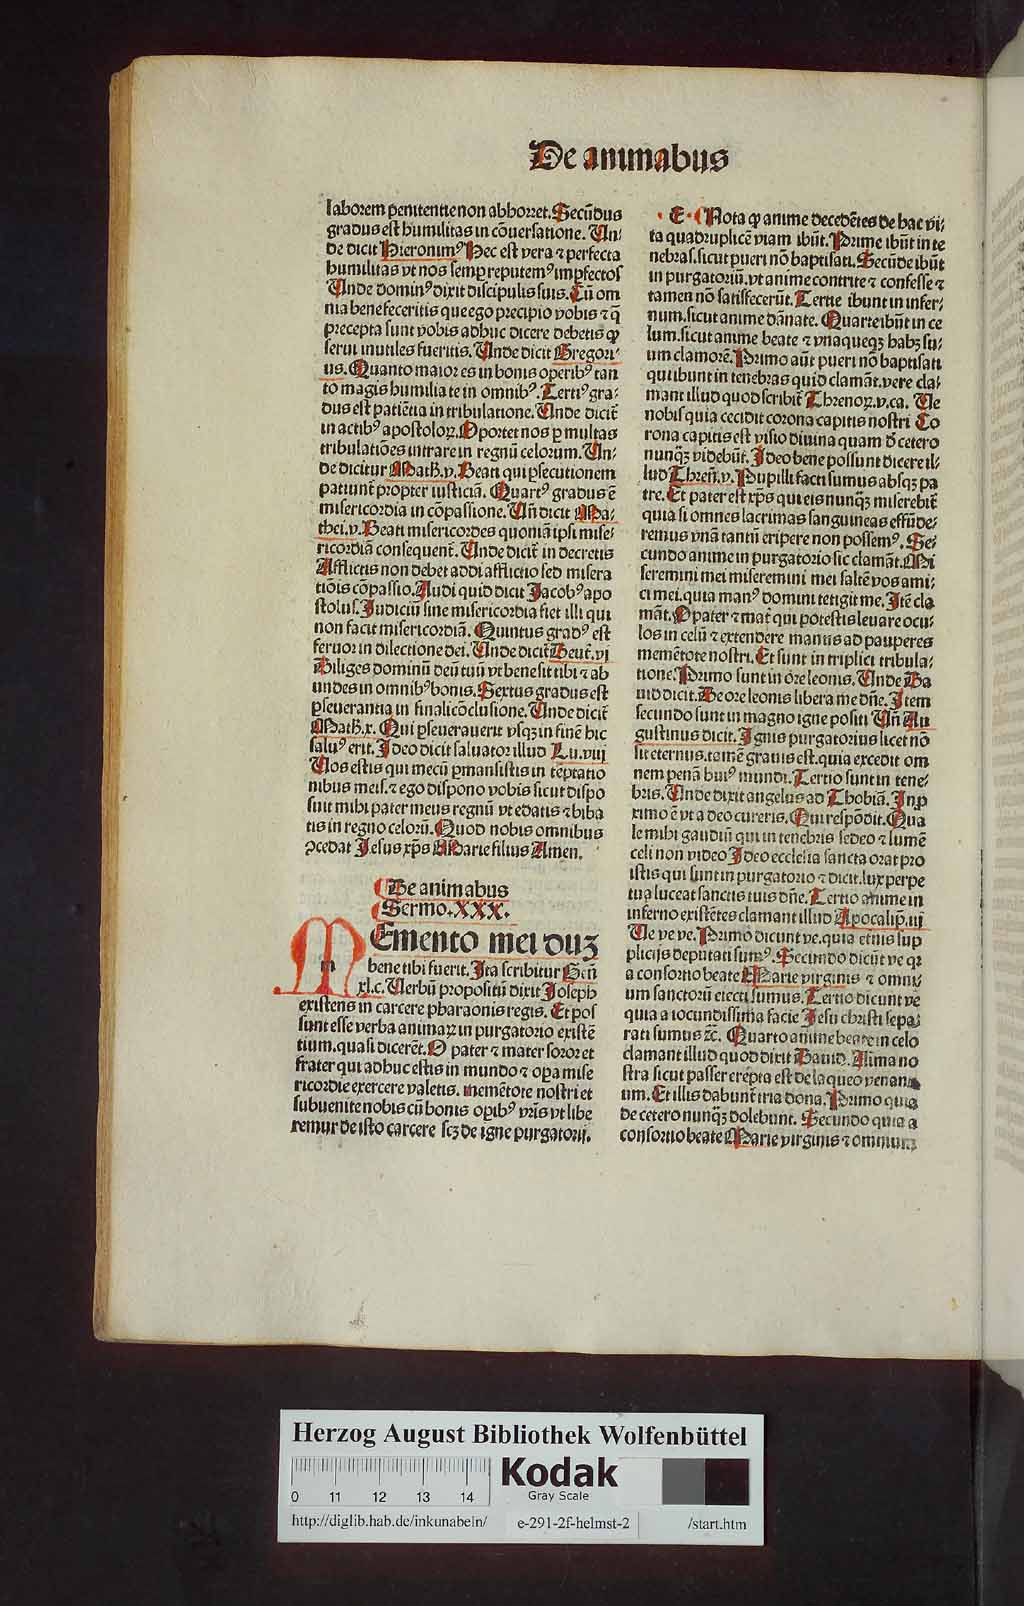 De animabus
laborem penitentie non abhorret. Secūdus
gradus est humilitas in cōuersatione. Un-
de dicit Hieronimꝰ Hec est vera ⁊ perfecta
humilitas vt nos semp reputemꝰ impfectos
Unde dominꝰ dixit discipulis suis. Cū om
nia benefeceritis que ego precipio vobis ⁊ q̄
p̄cepta sunt vobis adhuc dicere debetis ꝙ
serui inutiles fueritis. Unde dicit Gregori-
us. Quanto maior es in bonis operibꝰ tan
to magis humilia te in omnibꝰ. Tertiꝰ gra-
dus est patiētia in tribulatione. Unde dicit̄
in actibꝰ apostoloꝝ. Oportet nos p multas
tribulatiōes intrare in regnū celorum. Un-
de dicitur Math. v. Beati qui psecutionem
patiunt̄ propter iusticiā. Quartꝰ gradus ē
misericordia in cōpassione. Un̄ dicit Ma-
thei. v. Beati misericordes quoniā ipsi mise-
ricordiā consequent̄. Unde dicit̄ in decretis
Afflictis non debet addi afflictio sed misera
tiōis cōpassio. Audi quid dicit Jacobꝰ apo
stolus. Judiciū sine misericordia fiet illi qui
non facit misericordiā. Quintus gradꝰ est
feruor in dilectione dei. Unde dicit̄ Deut̄. vi
Diliges dominū deū tuū vt bene sit tibi ⁊ ab
undes in omnibꝰ bonis. Sextus gradus est
pseuerantia in finali cōclusione. Unde dicit̄
Math. x. Qui pseuerauerit vsqꝫ in finē hic
saluꝰ erit. Ideo dicit saluator illud Lu. viij
Uos estis qui mecū pmansistis in tēptatio
nibus meis. ⁊ ego dispono vobis sicut dispo
suit mihi pater meus regnū vt edatis ⁊ biba
tis in regno celorū. Quod nobis omnibus
ꝯcedat Jesus xp̄s Marie filius Amen.
De animabus
Sermo. XXX.
MEmento mei duꝫ
bene tibi fuerit. Ita scribitur Geñ
xl. c. Uerbū propositū dixit Joseph
existens in carcere pharaonis regis. Et pos
sunt esse verba animaꝝ in purgatorio existē
tium. quasi dicerēt. O pater ⁊ mater soror et
frater qui adhuc estis in mundo ⁊ opa mise
ricordie exercere valetis. memētote nostri et
subuenite nobis cū bonis opibꝰ vr̄is vt libe
remur de isto carcere scꝫ de igne purgatorij.
E. Nota ꝙ anime decedētes de hac vi-
ta quadruplicē viam ibūt. Prime ibūt in te
nebras. sicut pueri nō baptisati. Secūde ibūt
in purgatoriū. vt anime contrite ⁊ confesse ⁊
tamen nō satisfecerūt. Tertie ibunt in infer-
num. sicut anime dānate. Quarte ibūt in ce
lum. sicut anime beate ⁊ vnaqueqꝫ habꝫ su-
um clamorē. Primo aūt pueri nō baptisati
qui ibunt in tenebras quid clamāt. vere cla-
mant illud quod scribit̄ Threnoꝝ. v. ca. Ue
nobis quia cecidit corona capitis nostri Co
rona capitis est visio diuina quam d̄ cetero
nunqꝫ videbūt. Ideo bene possunt dicere il-
lud Threñ. v. Pupilli facti sumus absqꝫ pa
tre. Et pater est xp̄s qui eis nunqꝫ miserebit̄
quia si omnes lacrimas sanguineas effūde-
remus vnā tantū eripere non possemꝰ. Se-
cundo anime in purgatorio sic clamāt. Mi
seremini mei miseremini mei saltē vos ami-
ci mei. quia manꝰ domini tetigit me. Itē cla
māt. O pater ⁊ mat̄ qui potestis leuare ocu-
los in celū ⁊ extendere manus ad pauperes
memētote nostri. Et sunt in triplici tribula-
tione. Primo sunt in ore leonis. Unde Da
uid dicit. De ore leonis libera me dn̄e. Item
secundo sunt in magno igne positi Un̄ Au
gustinus dicit. Ignis purgatorius licet nō
sit eternus. tamē grauis est. quia excedit om
nem penā huiꝰ mundi. Tertio sunt in tene-
bris. Unde dixit angelus ad Thobiā. In p
ximo ē vt a deo cureris. Qui respōdit. Qua
le mihi gaudiū qui in tenebris sedeo ⁊ lumē
celi non video Ideo ecclesia sancta orat pro
istis qui sunt in purgatorio ⁊ dicit. lux perpe
tua luceat sanctis tuis dn̄e. Tertio anime in
inferno existētes clamant illud Apocalip̄. iij
Ue ve ve. Primo dicunt ve. quia et̄nis sup
plicijs deputati sumꝰ. Secundo dicūt ve qꝛ
a consortio beate Marie virginis ⁊ omni-
um sanctorū eiecti sumus. Tertio dicunt ve
quia a iocundissima facie Jesu christi sepa-
rati sumus ⁊c̄. Quarto anime beate in celo
clamant illud quod dixit Dauid. Aīma no
stra sicut passer erepta est de laqueo venanti
um. Et illis dabunt̄ tria dona. Primo quia
de cetero nunqꝫ dolebunt. Secundo quia a
consortio beate Marie virginis ⁊ omniumꝫ
Herzog August Bibliothek Wolfenbüttel
0 11 12 13 14
Kodak
Gray Scale
http://diglib.hab.de/inkunabeln/ e-291-2f-helmst-2 /start.htm